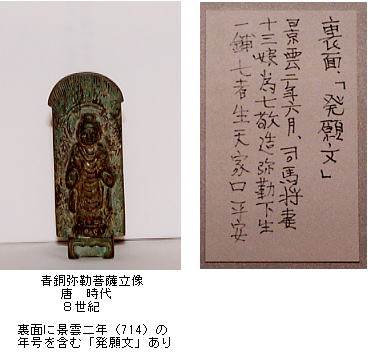 裏面、「発願文」
景雲二年六月、司馬将妻
十三娘為七敬造弥勒下生
一鋪七者生天家口平安
青銅弥勒菩薩立像
唐 時代
８世紀
裏面に景雲二年（714）の
年号を含む「発願文」あり